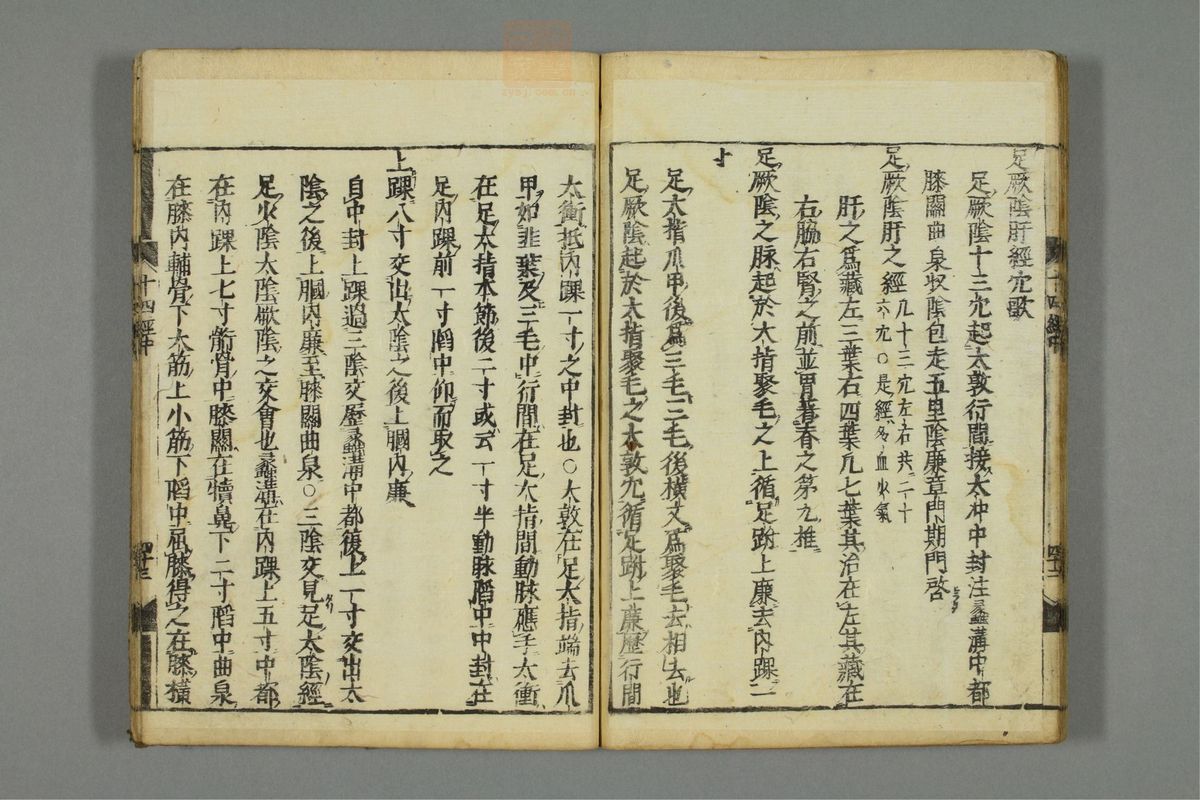 足厥陰肝經穴歌
足厥陰十三穴起大敦行間接太冲中封注蠡溝中都
膝關曲泉収陰包走五里陰廉章門期門啓
足厥陰肝之經
凢十三穴左右共二十
六穴○是經多血少氣
肝之爲藏左三葉右四葉凢七葉其治在左其藏在
右脇右腎之前並胃著脊之第九椎
足厥陰之脉起於大指聚毛之上循足跗上廉去内踝一
寸
足大指爪甲後爲三毛三毛後横文爲聚毛去相去也
足厥陰起於大指聚毛之大敦穴循足跗上廉歷行間
太衝抵内踝一寸之中封也○大敦在足大指端去爪
甲如韭葉及三毛中行間在足大指間動脉應手太衝
在足大指本節後二寸或云一寸半動脉䧟中中封在
足内踝前一寸䧟中仰而取之
上踝八寸交出太陰之後上膕内廉
自中封上踝過三陰交歷蠡溝中都復上一寸交出太
陰之後上膕内廉至膝關曲泉○三陰交見足太陰經
足少陰太陰厥陰之交會也蠡溝在内踝上五寸中都
在内踝上七寸䯒骨中膝關在犢鼻下二寸䧟中曲泉
在膝内輔骨下大筋上小筋下䧟中屈膝得之在膝横
十四經中
四十二
十四經中
四十三
zysj.com.cn